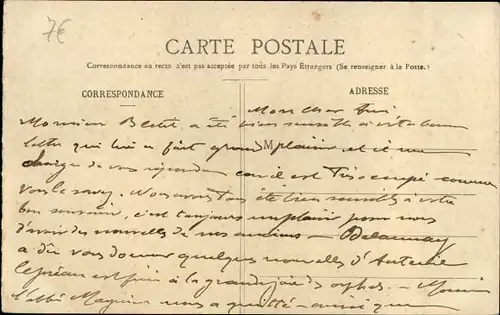 7€
CARTE POSTALE
Correspondance au recto n'est pas acceptée par tous les Pays Étrangers (Se renseigner à la Poste.)
CORRESPONDANCE
ADRESSE
Mon cher ami
Monsieur a été bien sensible à votre bonne
lettre qui lui a fait grand plaisir et il me
M
charge de vous répondre car il est très occupé comme
vous le savez. Nous avons tous été bien sensibles à votre
bon souvenir, c'est toujours un plaisir pour nous
d'avoir des nouvelles de nos anciens — Delaunay
a dû vous donner quelques nouvelles d'Auteuil
le préau est fini à la grande joie des orphes. — Monsieur
l'abbé nous a quitté — ainsi que